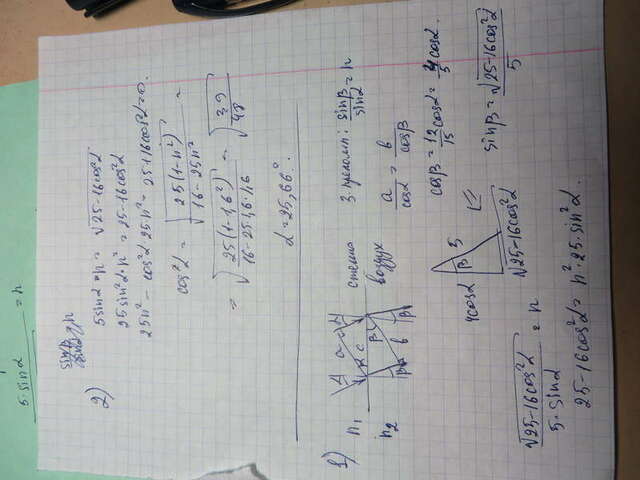 5·sinα = n
2)
5sinα·n = √25-16cos²α
25sin²α·n² = 25-16cos²α
25n² - cos²α 25n² - 25+16cos²α=0.
cos²α = √25(1-n²) / √16-25n² =
= √25(1-1,6²) / 16-25·1,6·1,6 = √39/48
α = 25,66°.
1)
n₁ стекло
n₂ воздух
a c β b
3. преломл: sinβ/sinα = n
a/cosα = b/cosβ
cosβ = 12/15 cosα = 4/5 cosα.
4cosα β 5 √25-16cos²α
sinβ = √25-16cos²α / 5
√25-16cos²α / 5·sinα = n
25-16cos²α = n²·25·sin²α.